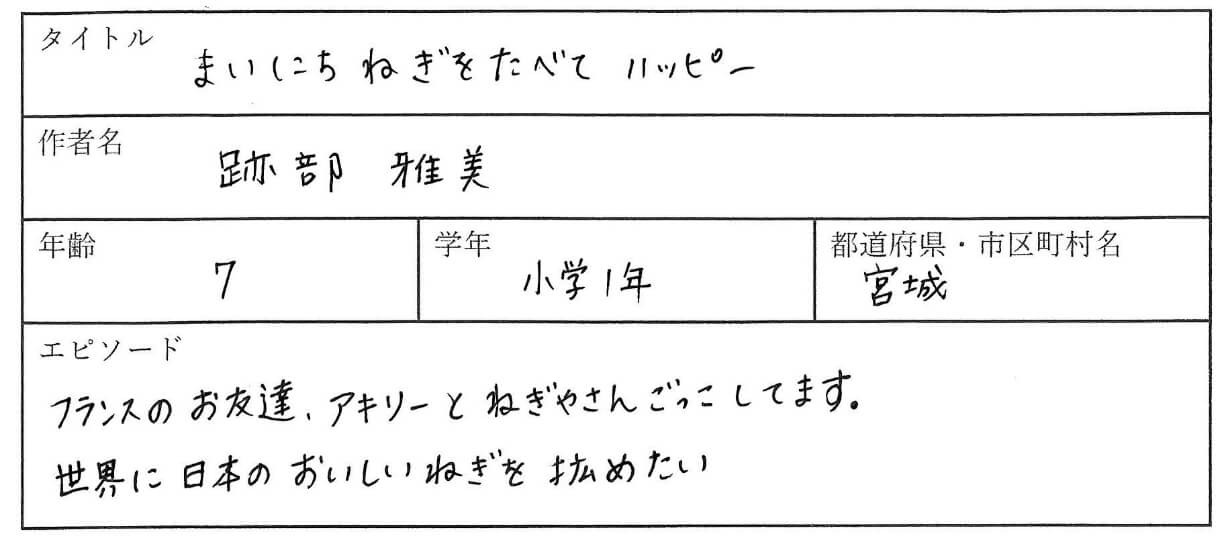 タイトル
まいにち ねぎを たべて ハッピー
作者名
跡部 雅美
年齢
7
学年
小学1年
都道府県・市区町村名
宮城
エピソード
フランスの お友達、アキリーと ねぎやさんごっこしてます。
世界に 日本の おいしいねぎを 拡めたい